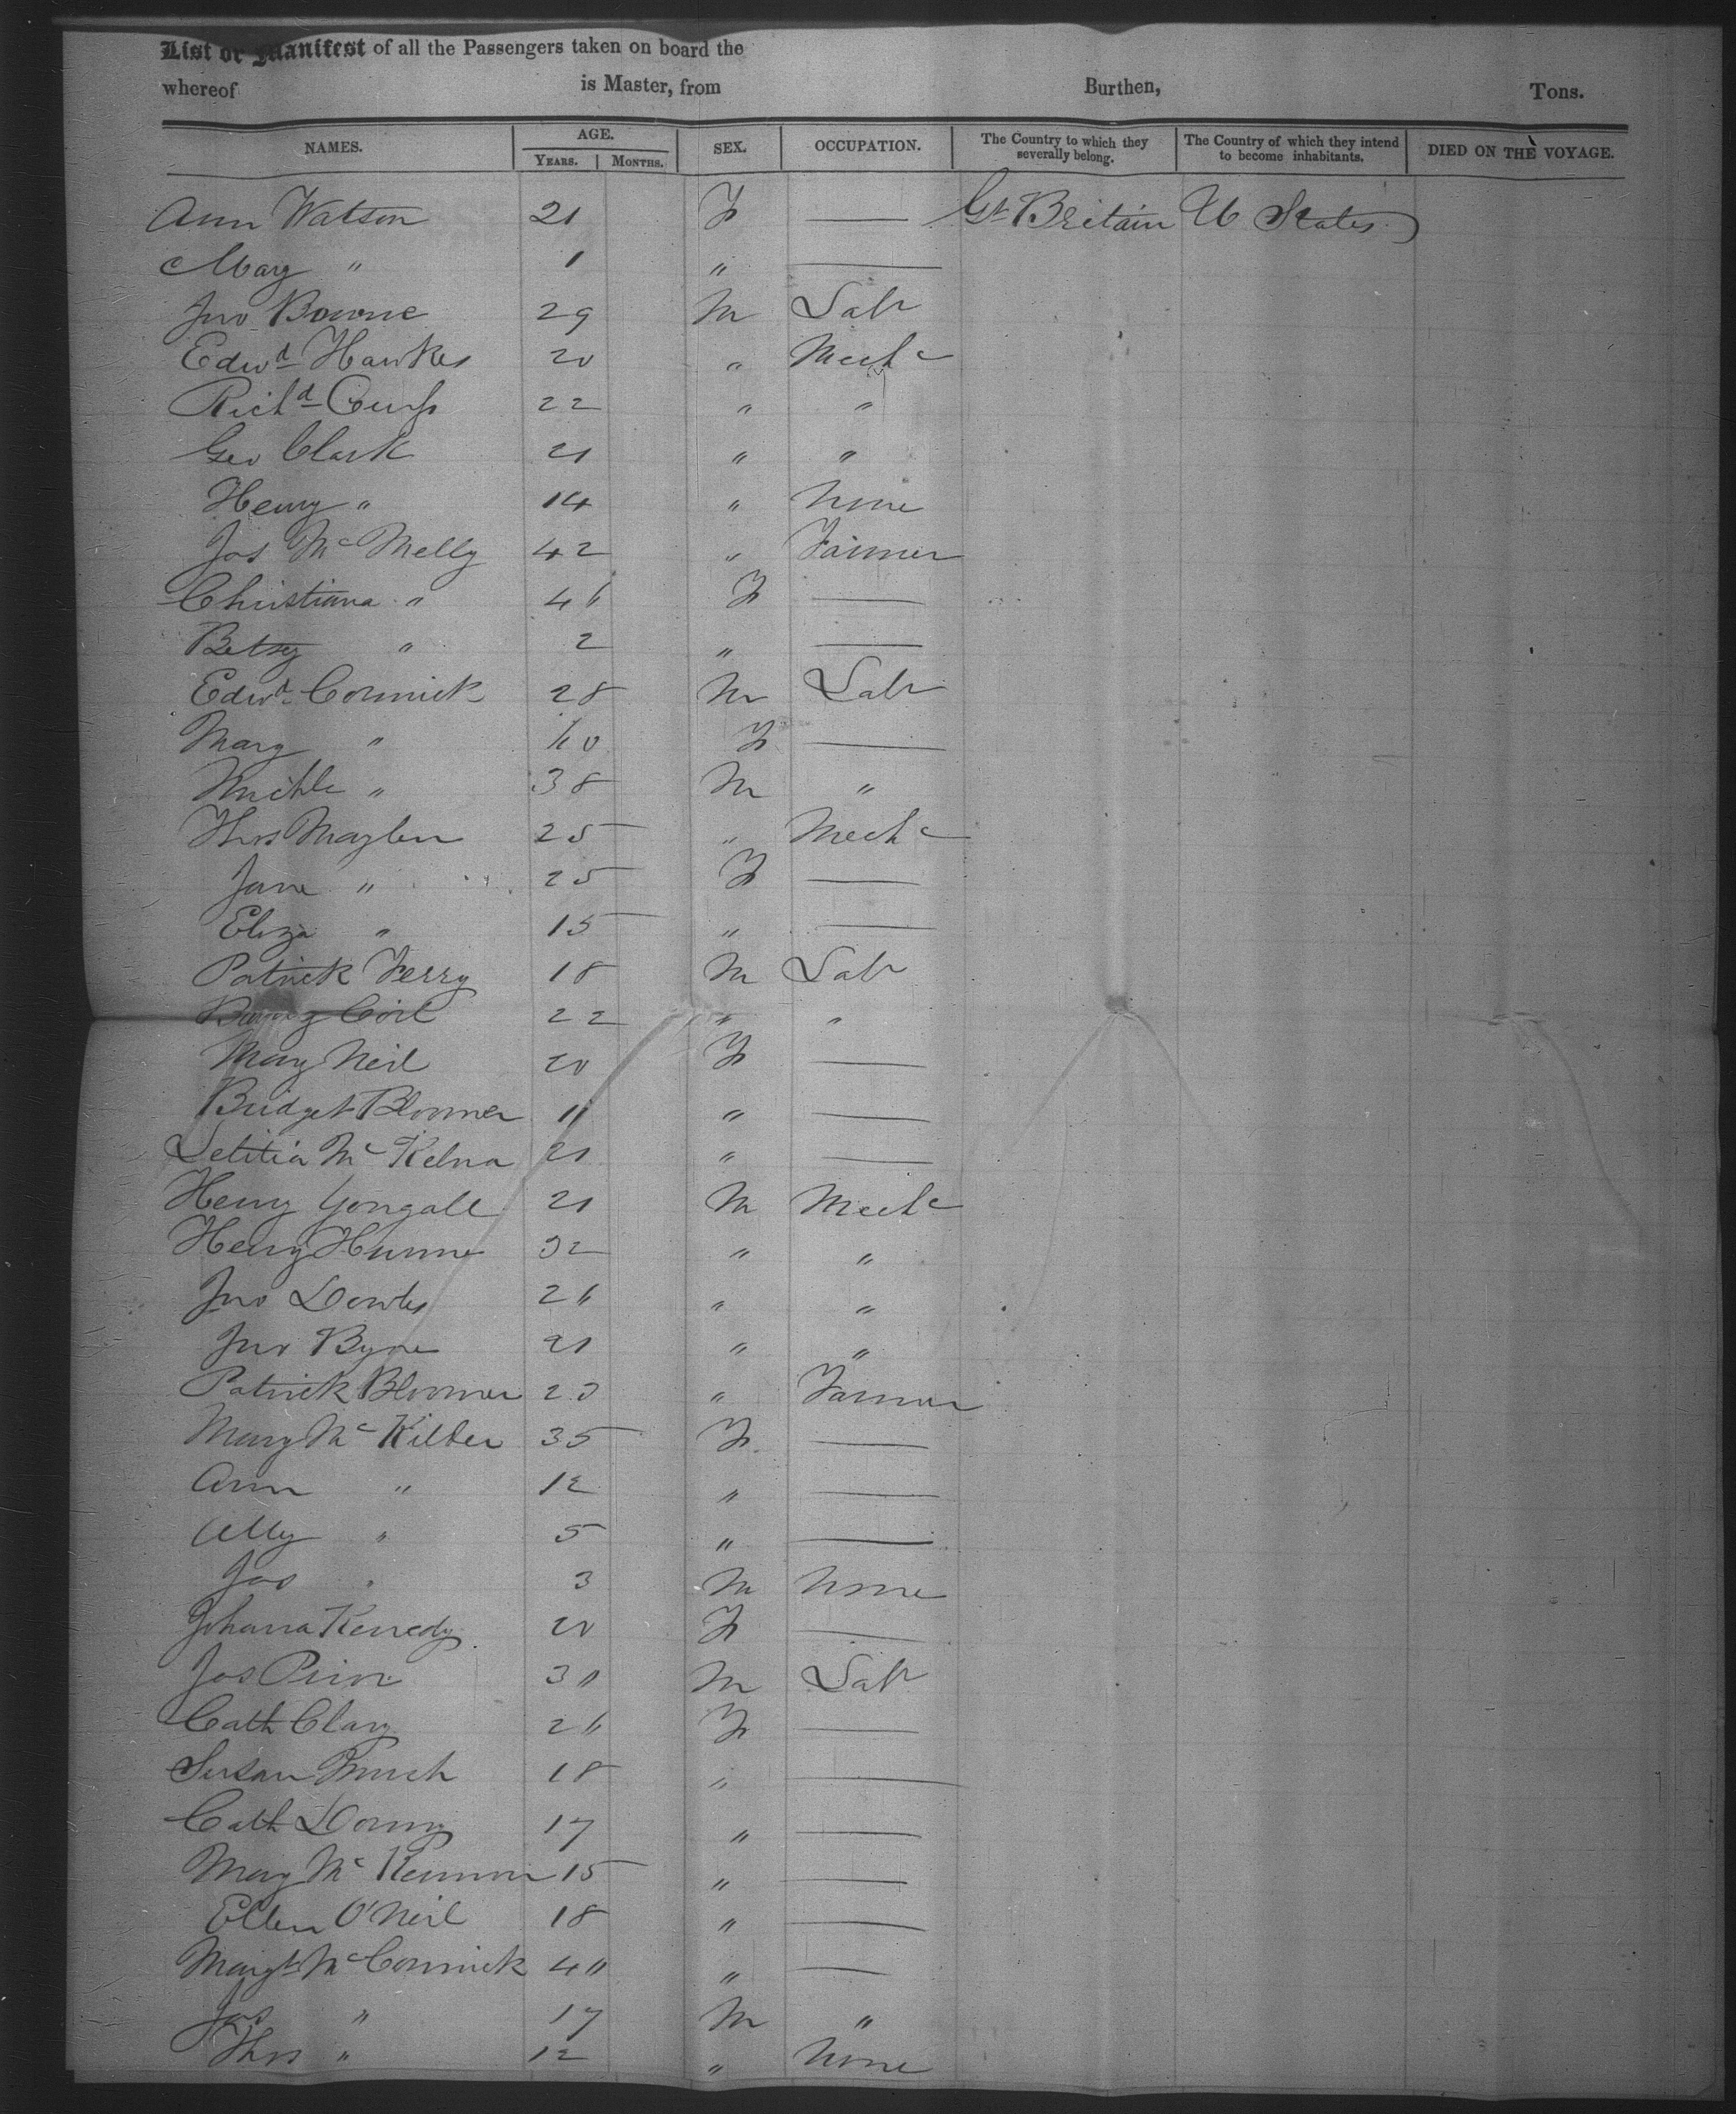 List or Manifest of all the Passengers taken on board the
whereof is Master, from Burthen, Tons.
NAMES. AGE. YEARS. MONTHS. SEX. OCCUPATION. The Country to which they severally belong. The Country of which they intend to become inhabitants. DIED ON THE VOYAGE.
Ann Watson 21 F — Gt Britain U States
Mary " 1 " —
Jno Bowne 29 M Labr
Edwd Hawkes 20 " Mechc
Richd 22 " "
Geo Clark 21 " "
Henry " 14 " None
Jas McMelly 42 " Farmer
Christiana " 46 F —
Betsy " 2 " —
Edwd Cormick 28 M Labr
Marg " 60 F —
Michle " 38 M "
Thos Mayben 25 " Mechc
Jane " 25 F —
Eliza " 15 " —
Patrick Ferry 18 M Labr
Coil 22 " "
Mary Neil 20 F —
Bridget Bloomer 11 " —
Letitia McKelna 21 " —
Henry Yongall 21 M Mechc
Henry Hunne 32 " "
Jno Dowles 26 " "
Jno Byrne 21 " "
Patrick Bloomer 23 " Farmer
Mary McKilber 35 F —
Ann " 12 " —
Ally " 5 " —
Jas " 3 M None
Johana Kenedy 20 F —
Jas 30 M Labr
Cath Clary 26 F —
Susan 18 " —
Cath Dorny 17 " —
Mary McKennon 15 " —
Ellen O'Neil 18 " —
Margt McCormick 40 " —
Jas " 17 M "
Thos " 12 " None